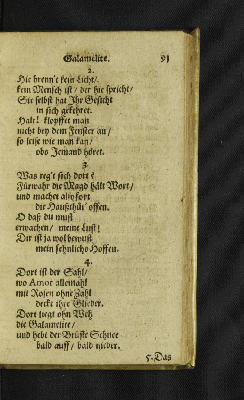 Galamelite. 91
2.
Hie brenn't kein Licht/
kein Mensch ist/ der hie spricht/
Sie selbst hat Ihr Gesicht
in sich gekehret.
Halt! klopffet man
nicht bey dem Fenster an/
so leise wie man kan/
obs Jemand höret.
3.
Was reg't sich dort?
Fürwahr die Magd hält Wort/
und machet alsofort
die Haußthür' offen.
O daß du must
erwachen/ meine Lust!
Dir ist ja wol bewust
mein sehnlichs Hoffen.
4.
Dort ist der Sahl/
wo Amor allemahl
mit Rosen ohne Zahl
deckt ihre Glieder.
Dort liegt ohn Weh
die Galamelite/
und hebt der Brüste Schnee
bald auff/ bald nieder.
5. Das